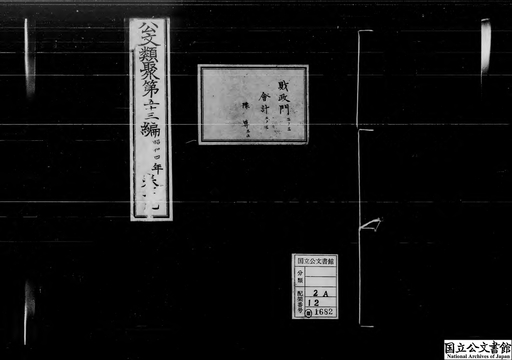 公文類聚第五十三編
昭和四年
財政門
会計
国立公文書館
分類
配架番号
2A
12
類1682
国立公文書館
National Archives of Japan